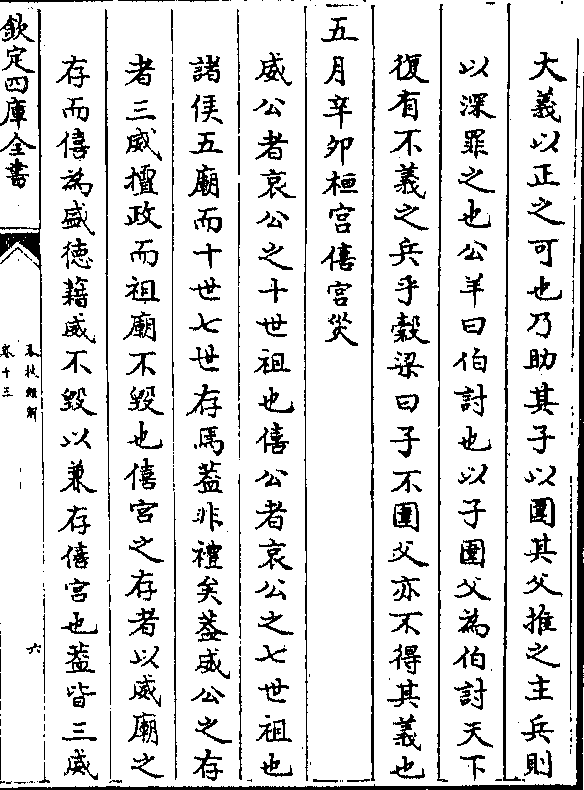 大義以正之可也乃助其子以圍其父推之主兵則
以深罪之也公羊曰伯討也以子圍父為伯討天下
復有不義之兵乎穀梁曰子不圍父亦不得其義也
五月辛卯桓宫僖宫災
威公者哀公之十世祖也僖公者哀公之七世祖也
諸侯五廟而十世七世存焉葢非禮矣葢威公之存
者三威擅政而祖廟不毀也僖宫之存者以威廟之
存而僖為盛徳藉威不毀以兼存僖宫也葢皆三威
欽定四庫全書
春秋經解
卷十三
六